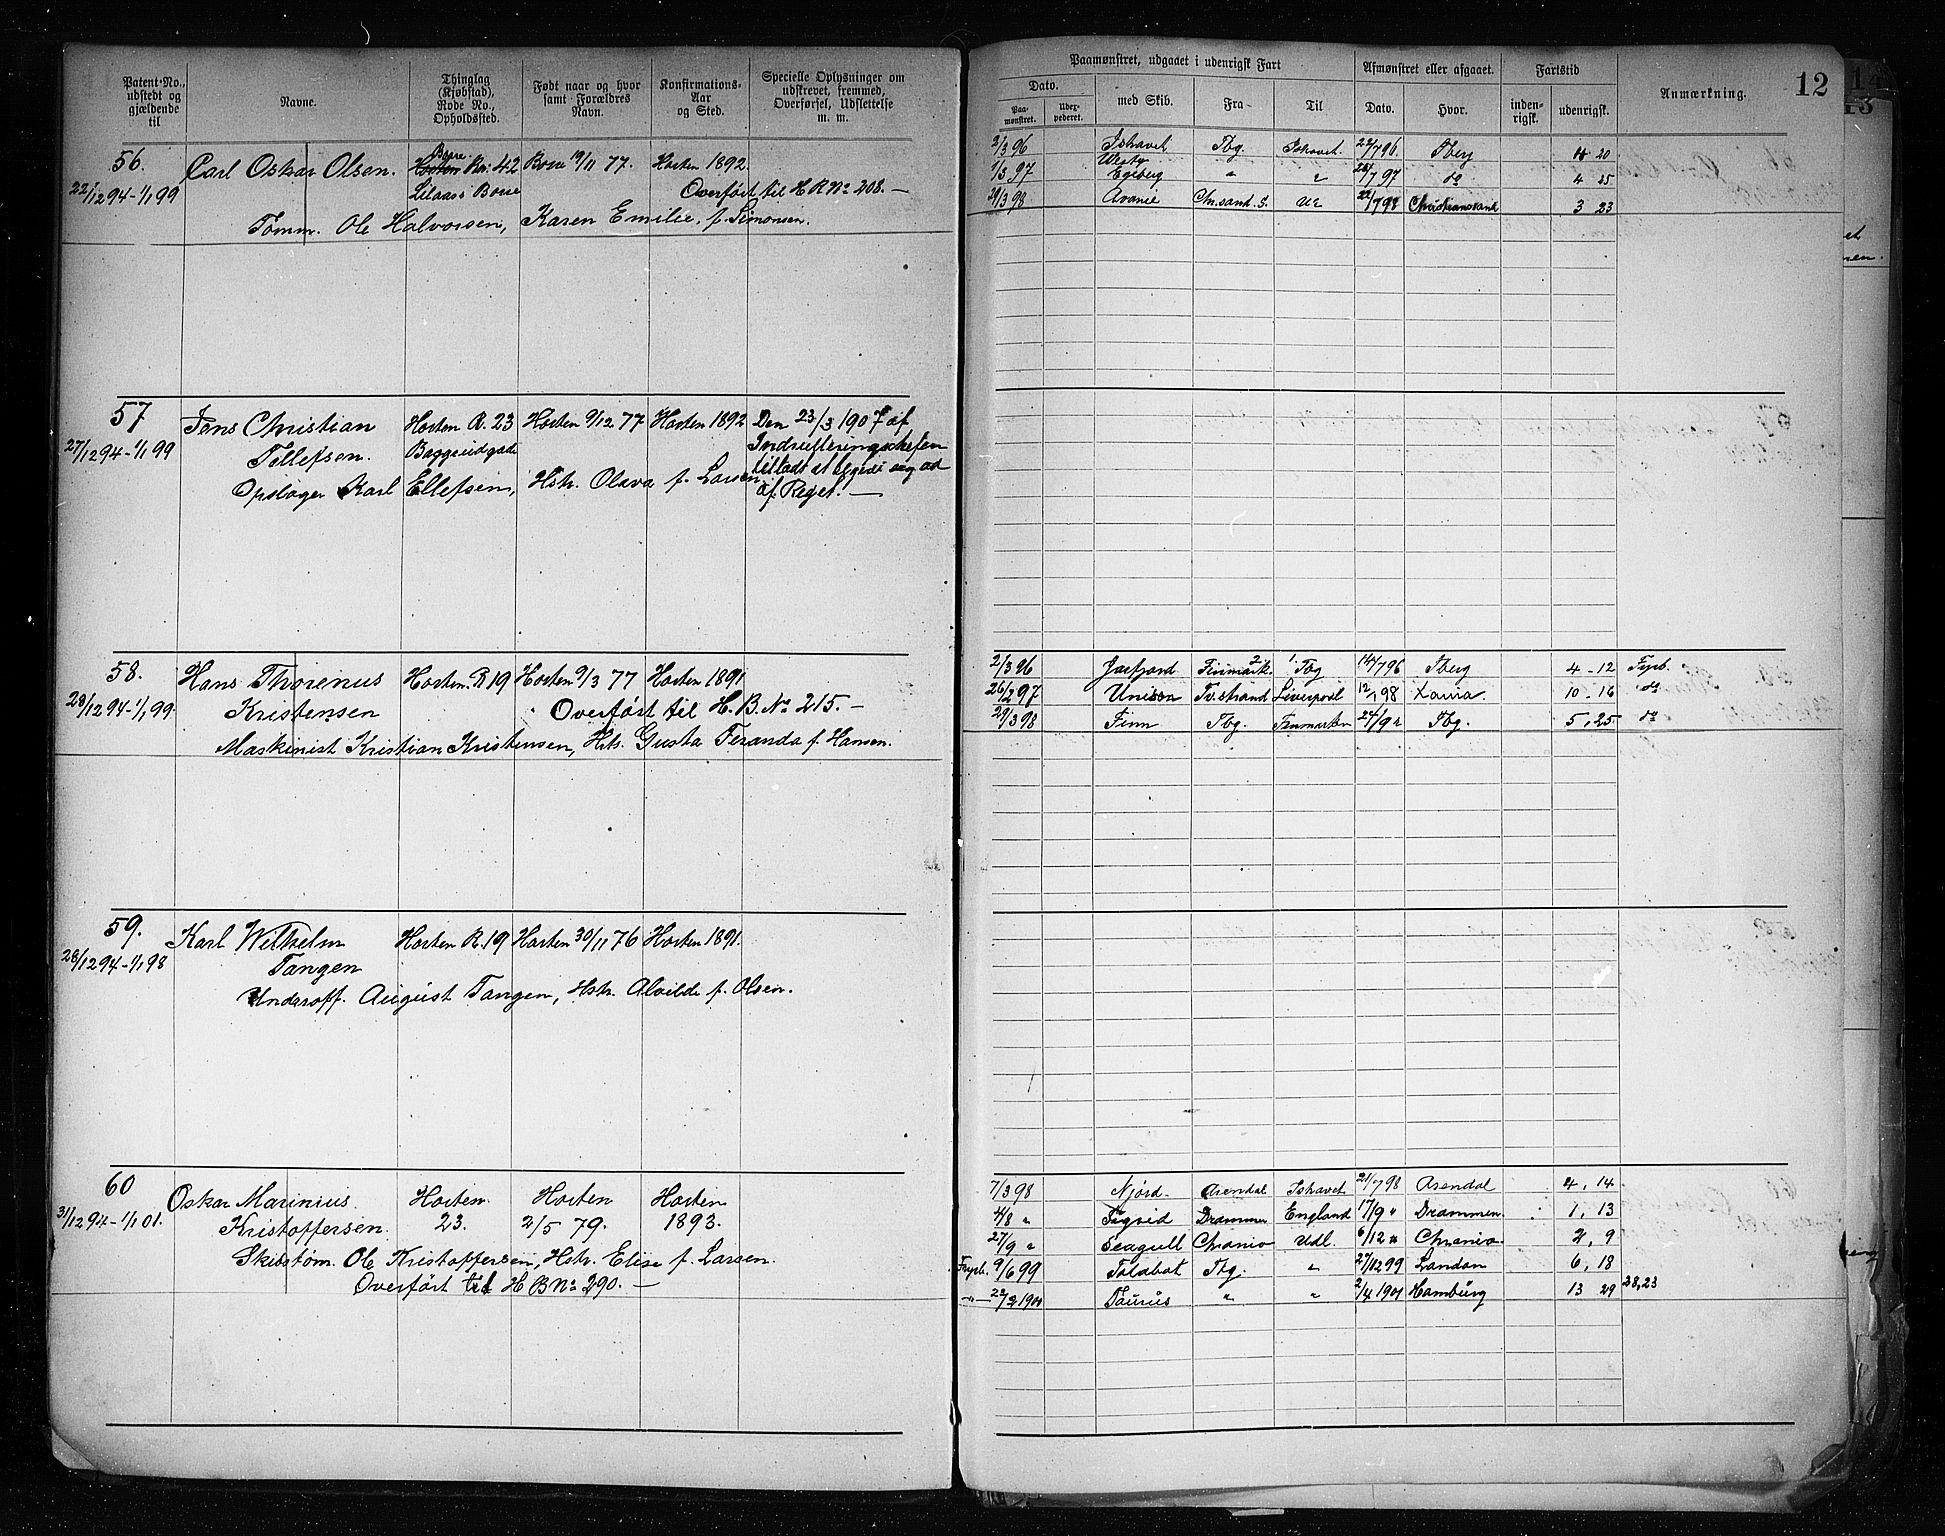 Patent-No., udstedt og gjældende til
Navne.
Thinglag (Kjøbstad), Rode No., Opholdssted.
Født naar og hvor samt Forældres Navn.
Konfirmations-Aar og Sted.
Specielle Oplysninger om udskrevet, fremmed, Overførsel, Udslettelse m. m.
56. Carl Oskar Olsen. Borre No. 42 Borre 19/11 77. Horten 1892.
22/12 94-1/1 99 Lilaas Borre Overført til H B No 208. —
Tømm. Ole Halvorsen, Karen Emilie, f. Simonsen.
57 Jens Christian Horten R. 23 Horten 9/12 77 Horten 1892 Den 23/3 1907 af
27/12 94-1/1 99 Tellefsen. Baggeudgade Indrulleringschefen
tilladt at begive sig ud
Opsløger Karl Ellefsen, Hstr. Olava f. Larsen af Reget. —
58. Hans Thorenus Horten. R 19 Horten 9/3 77 Horten 1891
28/12 94-1/1 99. Kristensen Overført til H. B. No 215. —
Maskinist Kristian Kristensen, Hstr. Gusta Feranda f. Hansen.
59. Karl Wilhelm Horten R. 19 Horten 30/11 76 Horten 1891.
28/12 94-1/1 98 Tangen
Underoff. August Tangen, Hstr. Alvilde f. Olsen.
60 Oskar Marinius Horten. Horten Horten
31/12 94-1/1 01. Kristoffersen. 23. 2/5 79. 1893.
Skibstøm. Ole Kristoffersen, Hstr. Elise f. Larsen.
Overført til H B No 290. —
12
Paamønstret, udgaaet i udenrigsk Fart
Afmønstret eller afgaaet.
Fartstid
Anmærkning.
Dato.
Paamønstret.
Udexpederet.
med Skib.
Fra
Til
Dato.
Hvor.
indenrigsk.
udenrigsk.
2/3 96 Ishavet Tbg. Ishavet. 22/7 96. Tberg 4 20
1/3 97 Westy Egeberg " " 26/7 97 do 4 25
28/3 98 Avance Ch.sand. S. Ud 22/7 98 Christianssand 3 23
2/3 96 Jarfjord Finmark. Tbg 14/7 96 Tberg 4 - 12 Fyrb.
26/2 97 Unison Tvestrand Liverpool 12/1 98 10 - 16 do
29/3 98 Finn Tbg. Finmarken 24/9 " Tbg. 5, 25 do
7/3 98 Njørd. Arendal Ishavet 21/7 98 Arendal 4, 14
4/8 " Sigrid Drammen England 17/9 " Drammen. 1, 13
27/9 " Seagull Chrania Udl. 6/12 " Chrania. 2, 9
Fyrb. 9/6 99 Talabot Tbg. " 27/12 99 London 6, 18
—"— 22/2 1900 Taurus " " 2/4 1901 Hamburg 13 29 28,23